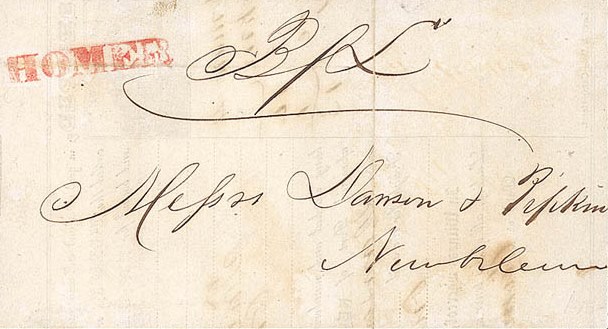 HOMER
B/L
Messrs Dawson & Pipkin
New Orleans